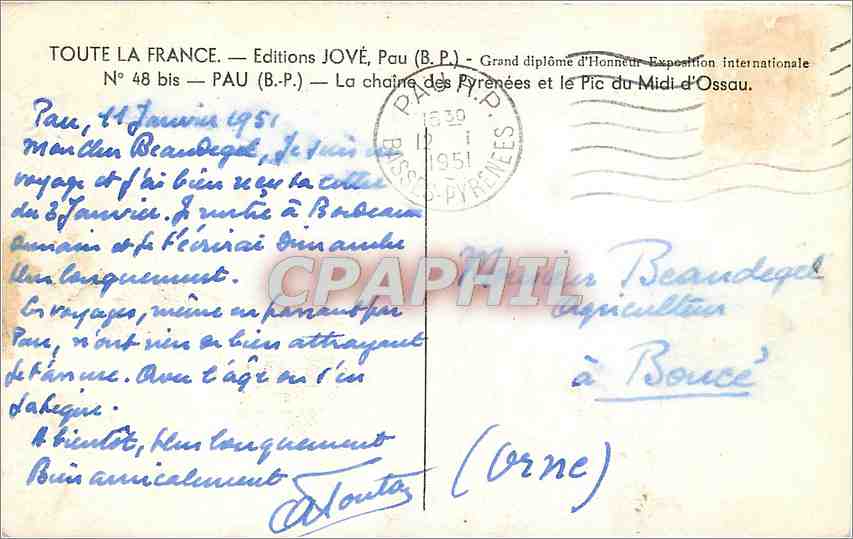 TOUTE LA FRANCE. — Editions JOVÉ, Pau (B. P.) - Grand diplôme d'Honneur Exposition internationale
N° 48 bis — PAU (B.-P.) — La chaîne des Pyrénées et le Pic du Midi d'Ossau.
PAU R.P.
1830
12 I
1951
BASSES-PYRENEES
Pau, 11 Janvier 1951
Mon cher Beaudegel, Je suis en
voyage et j'ai bien reçu ta lettre
du 8 Janvier. Je rentre à Bordeaux
demain et je t'écrirai Dimanche
plus longuement.
Les voyages, même en passant par
Pau, n'ont rien de bien attrayant
je t'assure. Avec l'âge on s'en
fatigue.
A bientôt, plus longuement
Bien amicalement
CPAPHIL
Monsieur Beaudegel
agriculteur
à Boucé
(Orne)